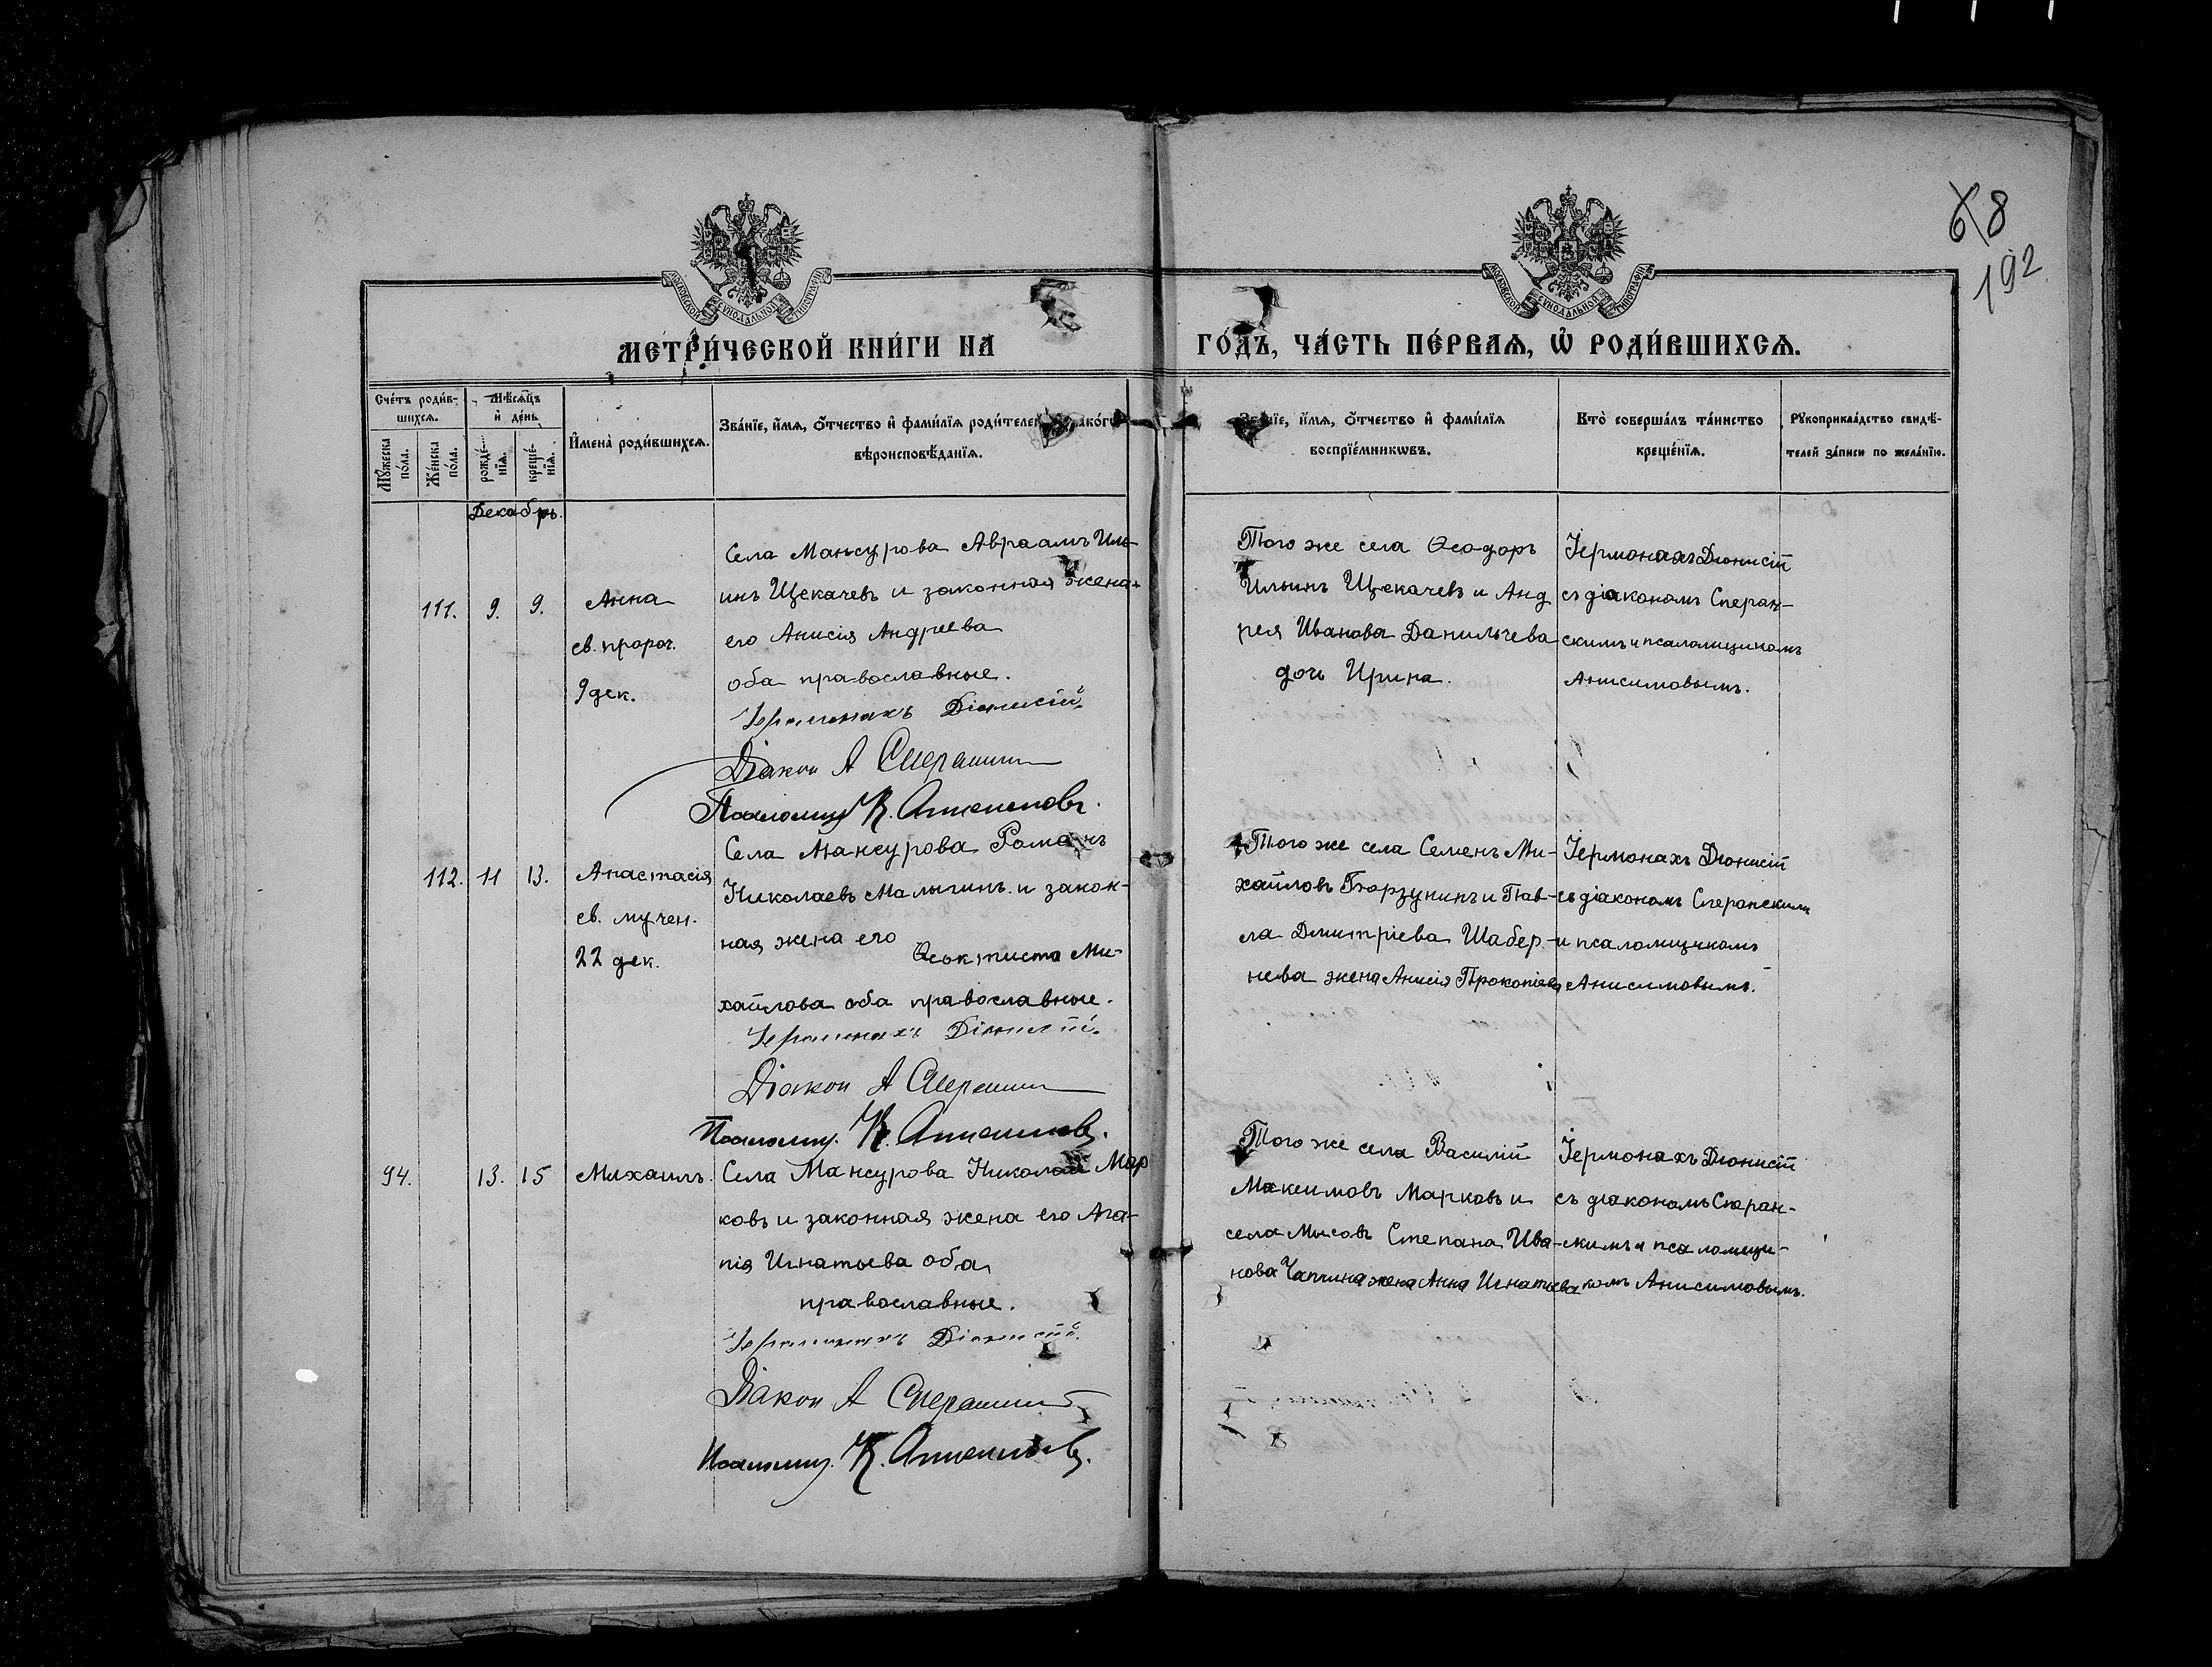 68
192
МОСКОВСКОЙ СѴНОДАЛЬНОЙ ТИПОГРАФІИ
МОСКОВСКОЙ СѴНОДАЛЬНОЙ ТИПОГРАФІИ
МЕТРИ́ЧЕСКОЙ КНИ́ГИ НА
ГО́ДЪ, ЧА́СТЬ ПЕ́РВАѦ, Ѡ РОДИ́ВШИХСѦ.
Сче́тъ роди́в-
шихсѧ.
Мѣ́сѧцъ
и҆ де́нь
Мꙋ́жеска по́ла.
Же́нска по́ла.
рожде́-нїѧ.
креще́-нїѧ.
И҆мена̀ роди́вшихсѧ.
Зва́нїе, и҆́мѧ, ѻ҆́тчество и҆ фами́лїѧ роди́телей
вѣроисповѣ́данїѧ.
и҆́мѧ, ѻ҆́тчество и҆ фами́лїѧ
воспрїе́мникѡвъ.
Кто̀ соверша́лъ та́инство
креще́нїѧ.
Рꙋкоприкла́дство свидѣ́-
телей за́писи по жела́нїю.
Декабрь.
111. 9. 9.
Анна
св. пророч.
9 дек.
Села Мансурова Авраамъ Иль-
инъ Щекачевъ и законная жена
его Анисія Андреева
оба православные.
Іеромонахъ Діонисій
Діакон А Сперанскій
Псаломщ К. Анисимовъ.
Того же села Ѳеодоръ
Ильинъ Щекачевъ и Анд
рея Иванова Данильчева
дочь Ирина.
Іермонахъ Діонисій
съ діакономъ Сперан-
скимъ и псаломщикомъ
Анисимовымъ.
112. 11 13.
Анастасія
св. мучен.
22 дек.
Села Мансурова Романъ
Николаевъ Малыгинъ и закон-
ная жена его
Ѳеоктиста Ми-
хайлова оба православные.
Іеромонахъ Діонисій
Діакон А Сперанскій
Псаломщ. К. Анисимовъ.
Того же села Семенъ Ми-
хайловъ Борзунинъ и Пав-
ла Дмитріева Шабер-
нева жена Анисія Прокопіева
Іермонахъ Діонисій
съ діакономъ Сперанскимъ
и псаломщикомъ
Анисимовымъ.
94. 13. 15
Михаилъ.
Села Мансурова Николай Мар
ковъ и законная жена его Ага-
пія Игнатьева оба
православные.
Іеромонахъ Діонисій
Діакон А Сперанскій
Псаломщ. К. Анисимовъ.
Того же села Василій
Максимовъ Марковъ и
села Мысовъ Степана Ива-
нова Чаплина жена Анна Игнатьева
Іермонахъ Діонисій
съ діакономъ Сперан-
скимъ и псаломщи-
комъ Анисимовымъ.